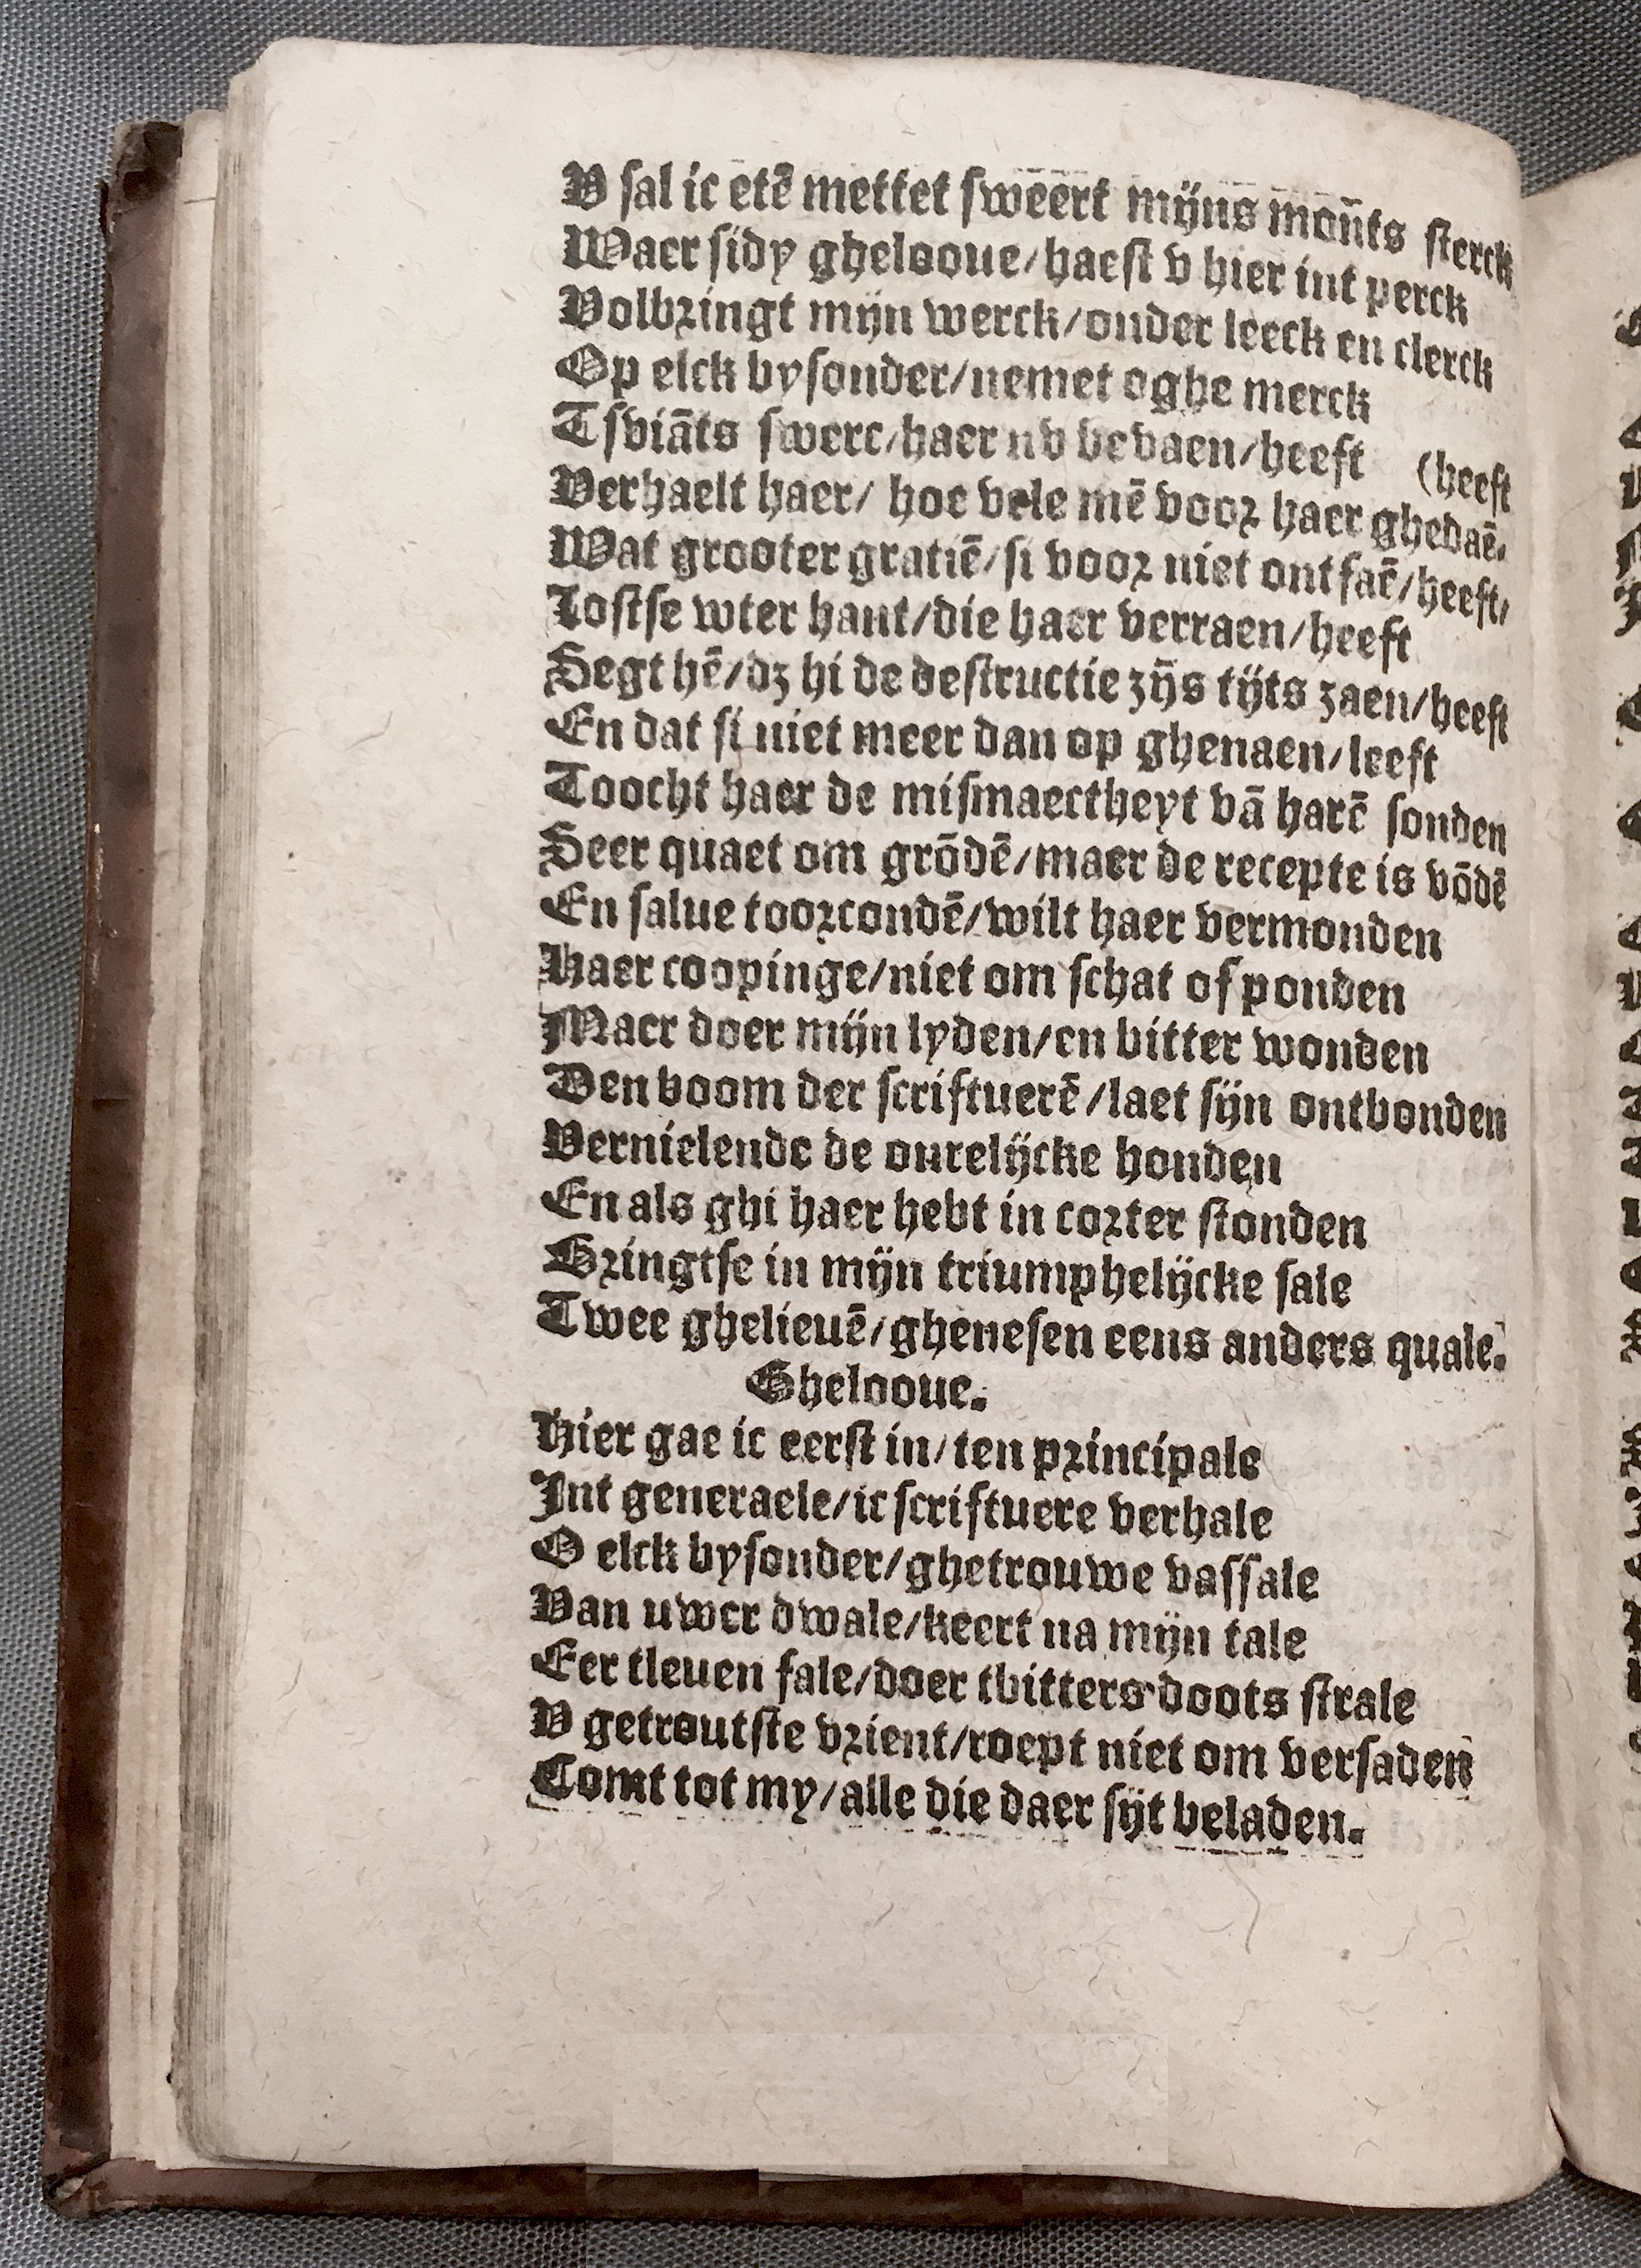 V sal ic etē mettet sweert mijns mon̄ts sterck
Waer sidy ghelooue/haest v hier int perck
Volbringt mijn werck/onder leeck en clerck
Op elck bysonder/nemet oghe merck
Tsviāts swerc/haer nv bevaen/heeft (heeft
Verhaelt haer/ hoe vele mē voor haer ghedaē.
Wat grooter gratiē/si voor niet ontfaē/heeft/
Lostse wter hant/die haer verraen/heeft
Segt hē/dz hi de destructie zijs tijts zaen/heeft
En dat si niet meer dan op ghenaen/leeft
Toocht haer de mismaectheyt vā harē sonden
Seer quaet om grōdē/maer de recepte is vōdē
En salue toorcondē/wilt haer vermonden
Haer coopinge/niet om schat of ponden
Maer doer mijn lyden/en bitter wonden
Den boom der scriftuerē/laet sijn ontbonden
Vernielende de onrelijcke honden
En als ghi haer hebt in corter stonden
Bringtse in mijn triumphelijcke sale
Twee ghelieuē/ghenesen eens anders quale.
Ghelooue.
Hier gae ic eerst in/ten principale
Int generaele/ic scriftuere verhale
O elck bysonder/ghetrouwe vassale
Van uwer dwale/keert na mijn tale
Eer tleuen fale/doer tbitters doots strale
V getroutste vrient/roept niet om versaden
Comt tot my/alle die daer sijt beladen.